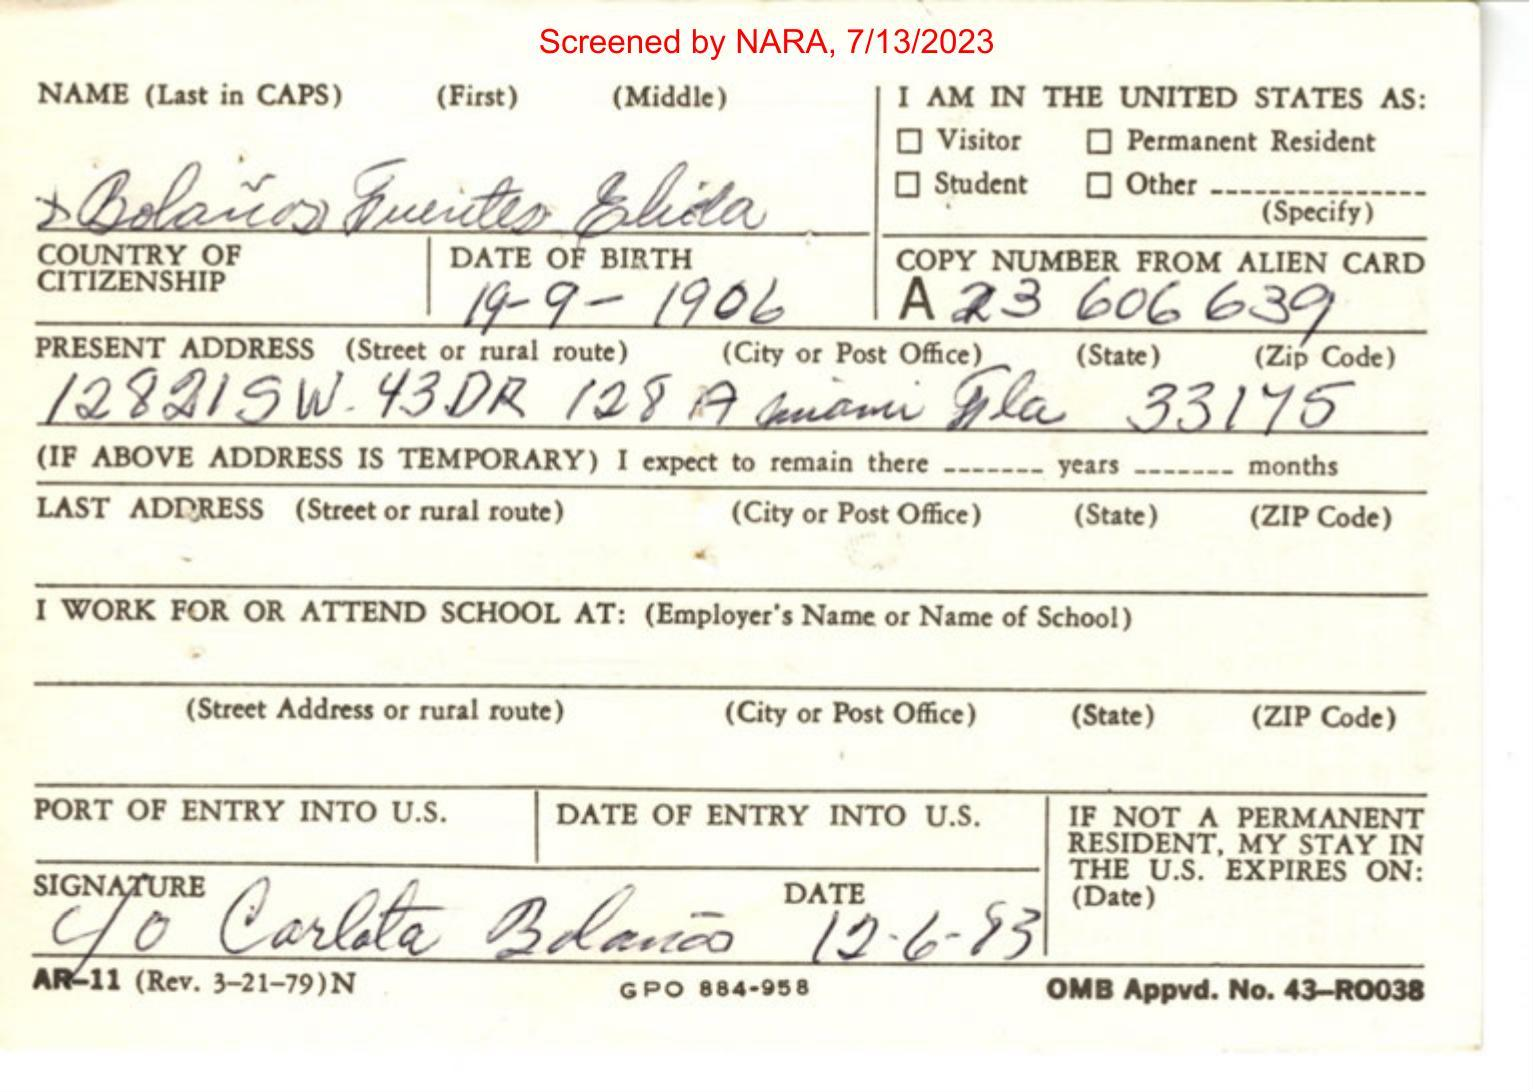 Screened by NARA, 7/13/2023
NAME (Last in CAPS) (First) (Middle)
Bolaños Fuentes Elida
I AM IN THE UNITED STATES AS:
☐ Visitor ☐ Permanent Resident
☐ Student ☐ Other
(Specify)
COUNTRY OF
CITIZENSHIP
DATE OF BIRTH
19-9-1906
COPY NUMBER FROM ALIEN CARD
A 23 606 639
PRESENT ADDRESS (Street or rural route) (City or Post Office) (State) (Zip Code)
12821 SW. 43 DR 128 A miami Fla 33175
(IF ABOVE ADDRESS IS TEMPORARY) I expect to remain there ------- years ------- months
LAST ADDRESS (Street or rural route) (City or Post Office) (State) (ZIP Code)
I WORK FOR OR ATTEND SCHOOL AT: (Employer's Name or Name of School)
(Street Address or rural route) (City or Post Office) (State) (ZIP Code)
PORT OF ENTRY INTO U.S.
DATE OF ENTRY INTO U.S.
IF NOT A PERMANENT
RESIDENT, MY STAY IN
THE U.S. EXPIRES ON:
(Date)
SIGNATURE DATE
c/o Carlota Bolaños 12-6-83
AR-11 (Rev. 3-21-79)N GPO 884-958 OMB Appvd. No. 43-RO038